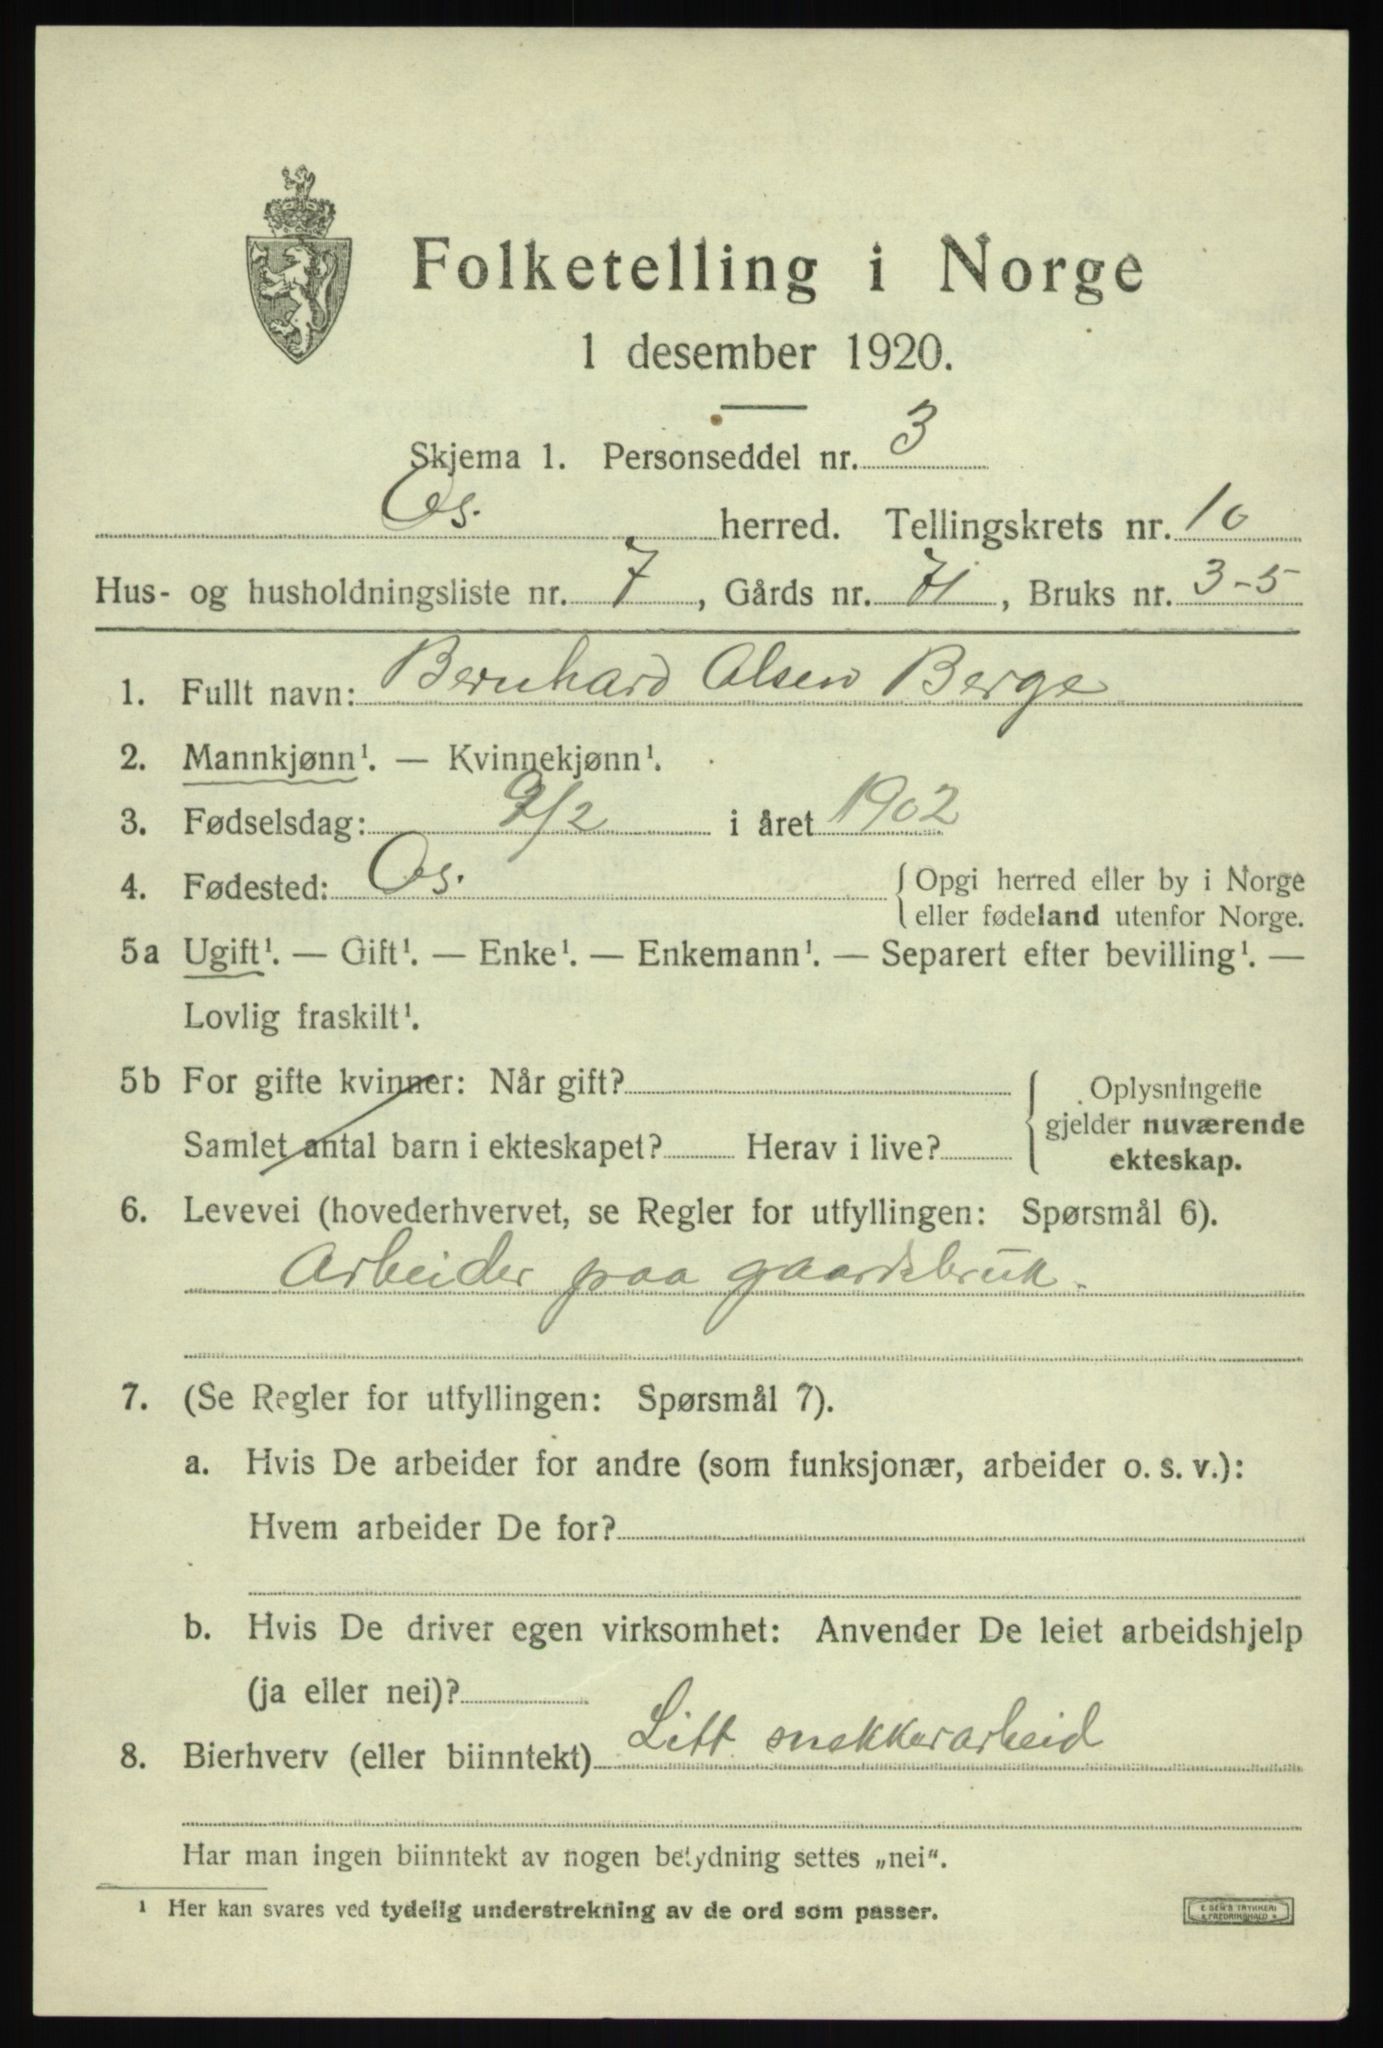 Folketelling i Norge
1 desember 1920.
Skjema 1. Personseddel nr. 3
Os. herred. Tellingskrets nr. 10
Hus- og husholdningsliste nr. 7, Gårds nr. 71, Bruks nr. 3-5
1. Fullt navn: Bernhard Olsen Berge
2. Mannkjønn¹. — Kvinnekjønn¹.
3. Fødselsdag: 9/2 i året 1902
4. Fødested: Os. { Opgi herred eller by i Norge
eller fødeland utenfor Norge.
5a Ugift¹. — Gift¹. — Enke¹. — Enkemann¹. — Separert efter bevilling¹. —
Lovlig fraskilt¹.
5b For gifte kvinner: Når gift? { Oplysningene
gjelder nuværende
Samlet antal barn i ekteskapet? Herav i live?
ekteskap.
6. Levevei (hovederhvervet, se Regler for utfyllingen: Spørsmål 6).
Arbeider paa gaardsbruk.
7. (Se Regler for utfyllingen: Spørsmål 7).
a. Hvis De arbeider for andre (som funksjonær, arbeider o. s. v.):
Hvem arbeider De for?
b. Hvis De driver egen virksomhet: Anvender De leiet arbeidshjelp
(ja eller nei)?
8. Bierhverv (eller biinntekt) Litt snekkerarbeid
Har man ingen biinntekt av nogen betydning settes „nei“.
¹ Her kan svares ved tydelig understrekning av de ord som passer.
E. SEM'S TRYKKERI
FREDRIKSHALD